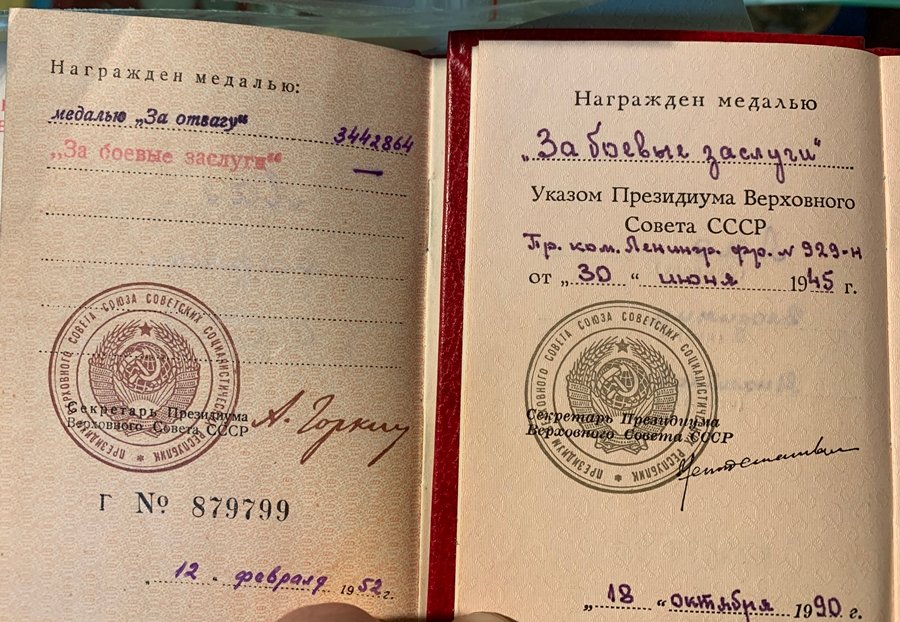 Награжден медалью:
медалью „За отвагу“ 3442864
„За боевые заслуги“ —
ПРЕЗИДИУМ ВЕРХОВНОГО СОВЕТА СОЮЗА СОВЕТСКИХ СОЦИАЛИСТИЧЕСКИХ РЕСПУБЛИК *
Секретарь Президиума
Верховного Совета СССР
А. Горкин
Г № 879799
„12 “ февраля 1952 г.
Награжден медалью
„За боевые заслуги“
Указом Президиума Верховного
Совета СССР
Пр. ком. Ленингр. фр. № 929-н
от „30 “ июня 1945 г.
ПРЕЗИДИУМ ВЕРХОВНОГО СОВЕТА СОЮЗА СОВЕТСКИХ СОЦИАЛИСТИЧЕСКИХ РЕСПУБЛИК *
Секретарь Президиума
Верховного Совета СССР
„18 “ октября 1990 г.